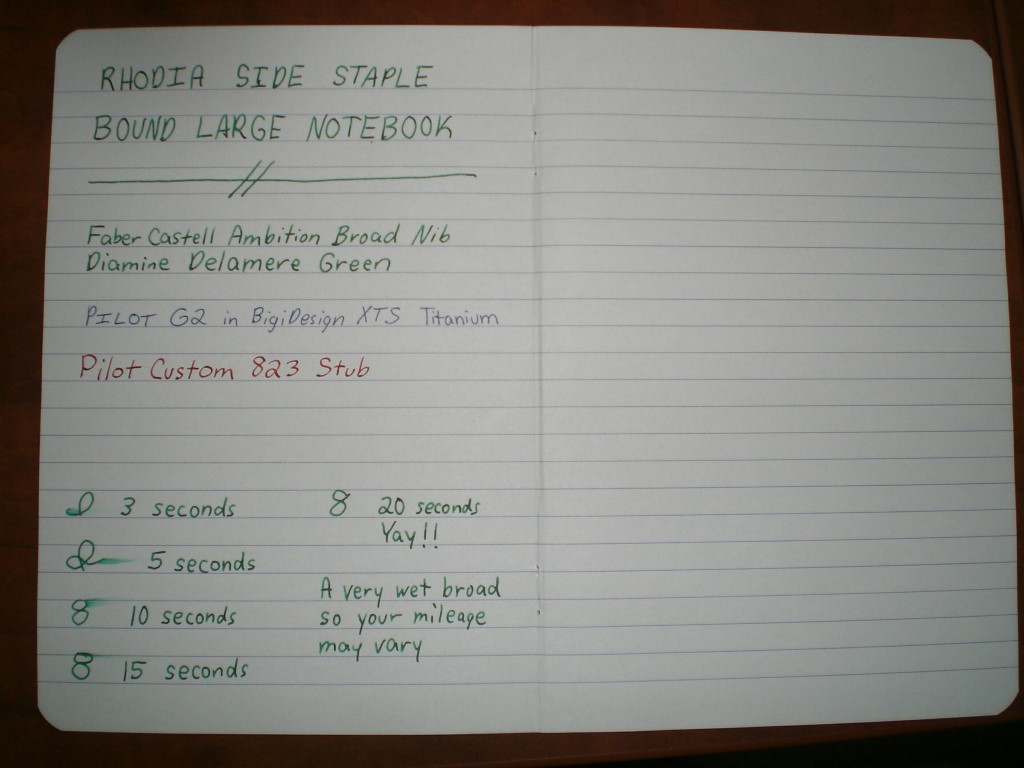 RHODIA SIDE STAPLE
BOUND LARGE NOTEBOOK
Faber Castell Ambition Broad Nib
Diamine Delamere Green
PILOT G2 in BigiDesign XTS Titanium
Pilot Custom 823 Stub
3 seconds
5 seconds
8 10 seconds
8 15 seconds
8 20 seconds
Yay!!
A very wet broad
so your mileage
may vary